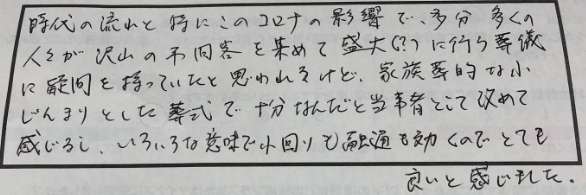 時代の流れと特にこのコロナの影響で、多分多くの
人々が沢山の弔問客を集めて盛大(?)に行う葬儀
に疑問を持っていたと思われるけど、家族葬的な小
じんまりとした葬式で十分なんだと当事者として改めて
感じるし、いろいろな意味で小回りも融通も効くのでとても
良いと感じました。